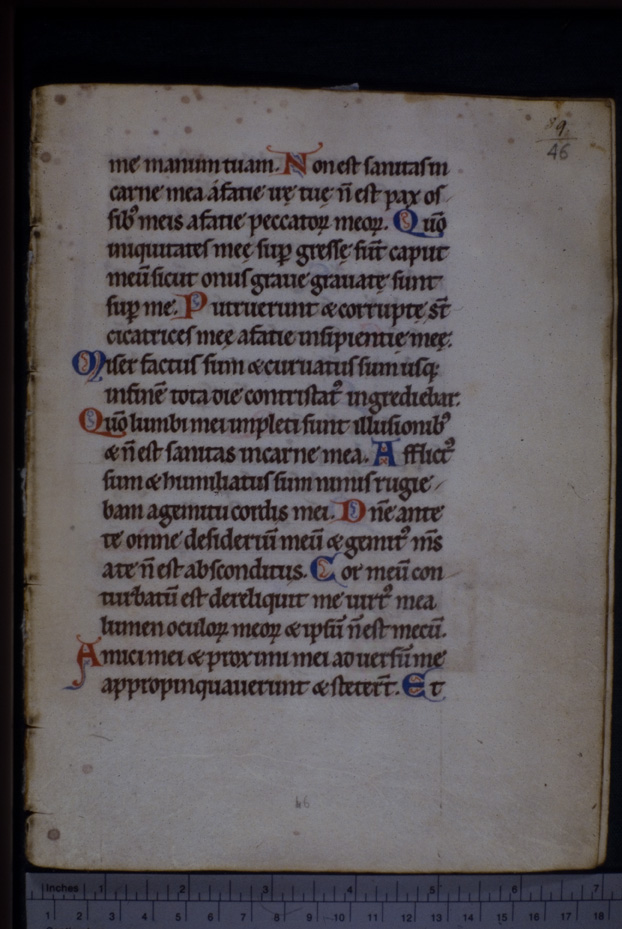 89
46
me manum tuam. Non est sanitas in
carne mea afatie irę tuę n̄ est pax os
sib᷒ meis afatie peccatoꝝ meoꝝ. Qūo
iniquitates meę sup̱ gressę sūt caput
meū sicut onus graue grauatę sunt
sup̱ me. Putruerunt & corruptę st̄
cicatrices meę afatie insipientię meę.
Miser factus sum & curuatus sum usq;
infinē tota die contristat᷒ ingrediebar.
Qūo lumbi mei impleti sunt illusionib᷒
& n̄ est sanitas incarne mea. Afflict᷒
sum & humiliatus sum nimis rugie
bam agemitu cordis mei. Dn̄e ante
te omne desideriū meū & gemit᷒ m̄s
ate n̄ est absconditus. Cor meū con
turbatū est dereliquit me uirt᷒ mea
lumen oculoꝝ meoꝝ & ipsū n̄ est mecū.
Amici mei & proximi mei aduersū me
appropinquauerunt & steter̄t. Et
46
Inches 1 2 3 4 5 6 7
1 2 3 4 5 6 7 8 9 10 11 12 13 14 15 16 17 18